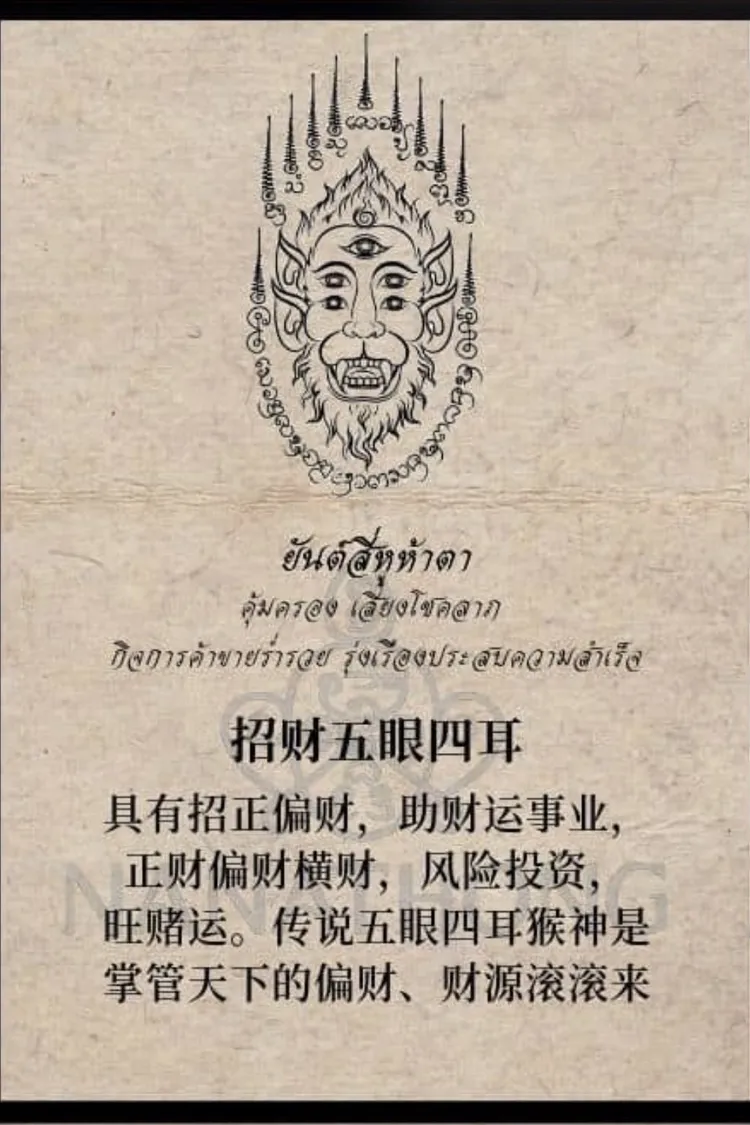 ยันต์สี่หูห้าตา
คุ้มครอง เสี่ยงโชคลาภ
กิจการค้าขายร่ำรวย รุ่งเรืองประสบความสำเร็จ
招财五眼四耳
具有招正偏财，助财运事业，
正财偏财横财，风险投资，
旺赌运。传说五眼四耳猴神是
掌管天下的偏财、财源滚滚来